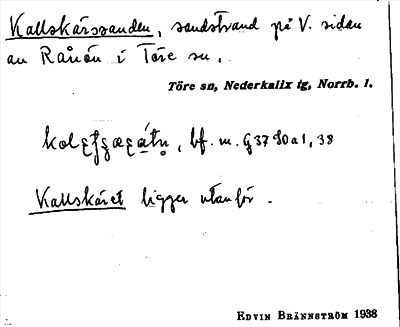 Kallskärssanden, sandstrand på V. sidan
av Rånön i Töre sn.
Töre sn, Nederkalix tg, Norrb. l.
bf. m. G 37 S0 a 1, 38
Kallskäret ligger utanför.
EDVIN BRÄNNSTRÖM 1938